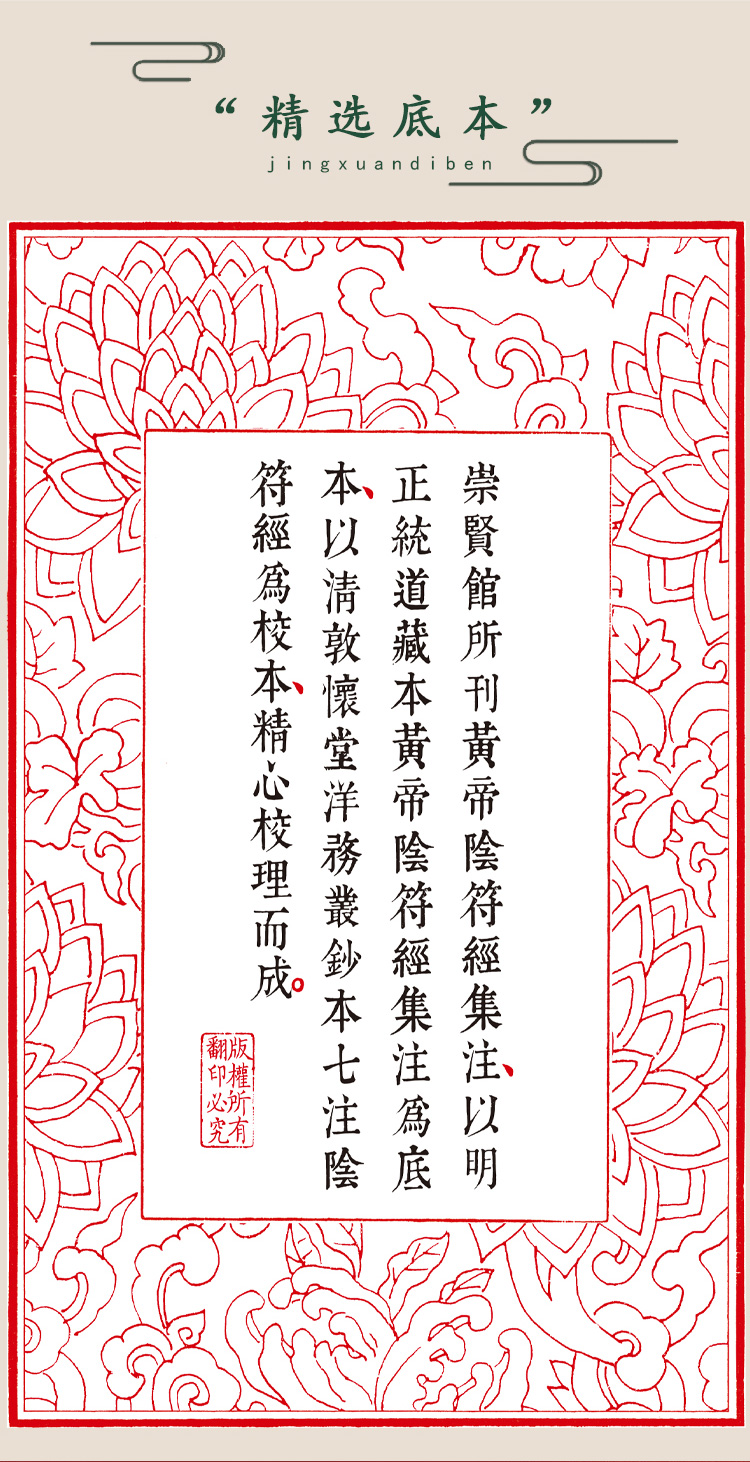 “精选底本”
jingxuandiben
崇賢館所刊黃帝陰符經集注、以明
正統道藏本黃帝陰符經集注爲底
本、以清敦懷堂洋務叢鈔本七注陰
符經爲校本、精心校理而成。
版權所有
翻印必究